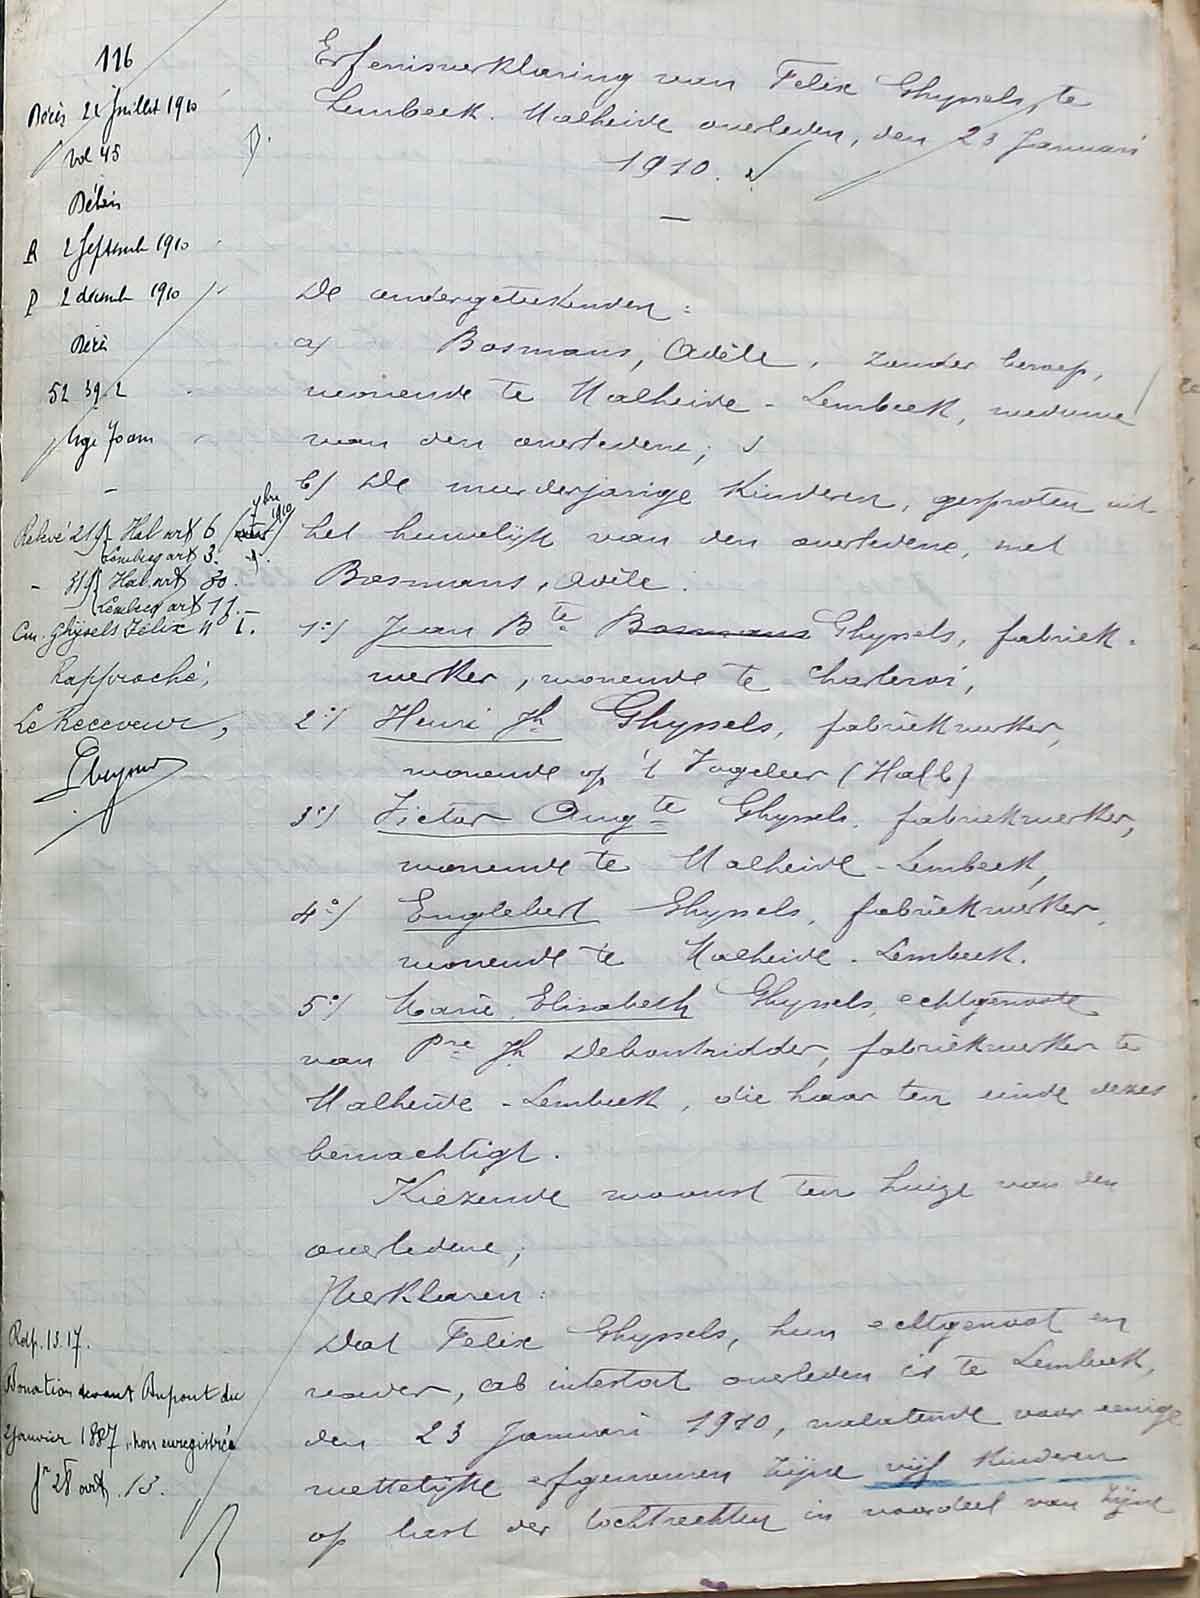 116
Erfenisverklaring van Felix Ghyssels, te
Lembeek. Malheide overleden, den 23 Januari
1910.
21 Juillet 1910
vol 45
R 2 Septemb 1910
P 2 decemb 1910
52 39 2
De ondergeteekenden :
a) Bosmans, Adèle, zonder beroep,
wonende te Malheide - Lembeek, weduwe
van den overledene;
b) De meerderjarige Kinderen, gesproten uit
het huwelijk van den overledene, met
Bosmans, Adèle.
1°/ Jean Bte Bosmans Ghyssels, fabriek-
werker, wonende te Charleroi,
2°/ Henri Jh Ghyssels, fabriekwerker,
wonende op 't Vogeleer (Hall)
3°/ Victor Augte Ghyssels, fabriekwerker,
wonende te Malheide - Lembeek,
4°/ Englebert Ghyssels, fabriekwerker,
wonende te Malheide - Lembeek.
5°/ Marie Elisabeth Ghyssels, echtgenoote
van Pre Jh Debontridder, fabriekwerker te
Malheide - Lembeek, die haar ten einde dezes
bemachtigt.
Kiezende woonst ten huize van den
overledene;
Verklaren :
Dat Felix Ghyssels, hun echtgenoot en
vader, ab intestat overleden is te Lembeek,
den 23 Januari 1910, nalatende voor eenige
wettelijke erfgenamen zijne vijf Kinderen
op last der tochtrechten in voordeel van zijne
Relevé 219 Hal art 6
Lembecq art 3.
- 319 Hal art 30.
Lembecq art 11.
Cm. Ghyssels Félix n° 1.
Rapproché,
Le Receveur,
Rép. 13.17.
Donation devant Dupont du
2 Janvier 1887, non enregistrée
art. 13.